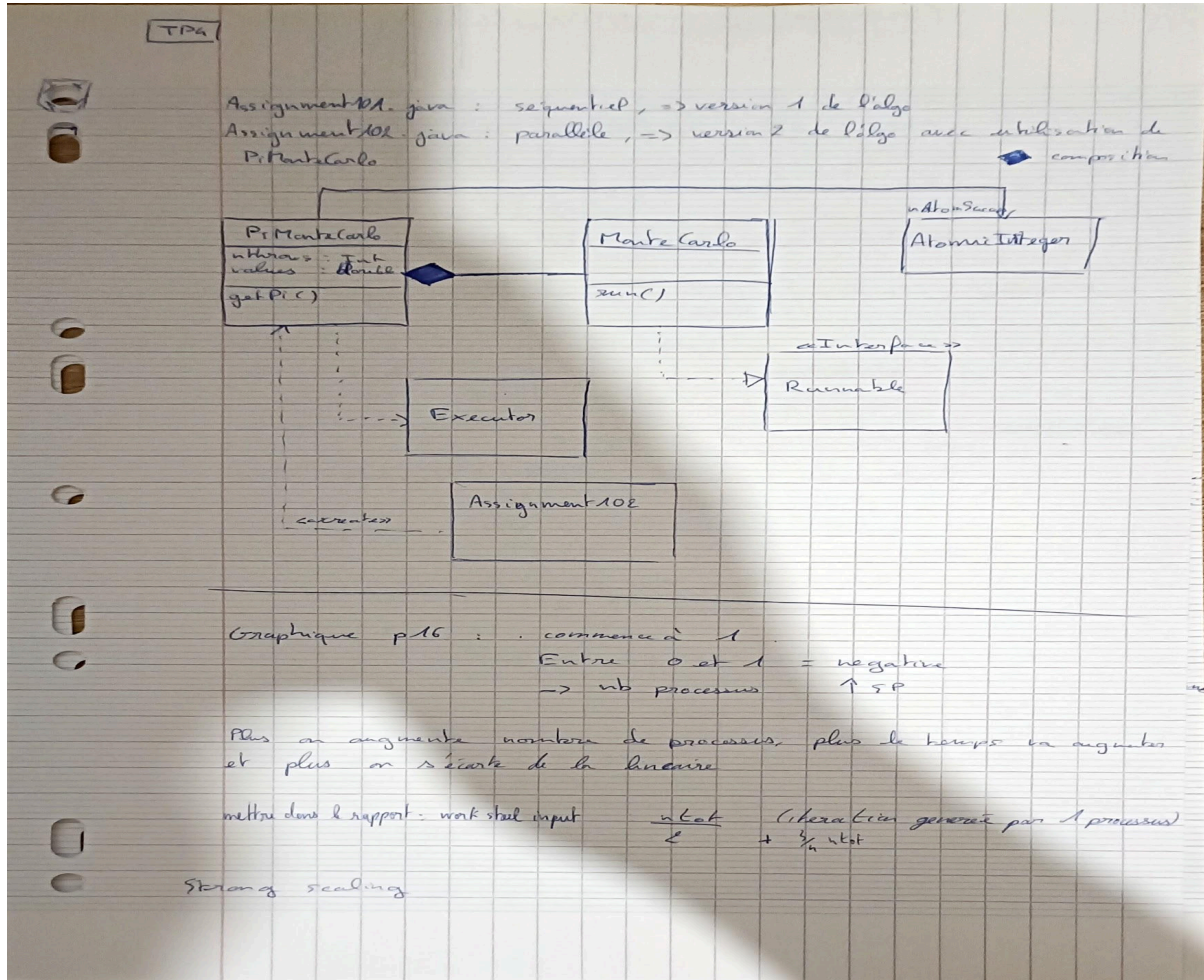 TP4
Assignment101.java : sequentiel, => version 1 de l'algo
Assignment102.java : parallèle, => version 2 de l'algo avec utilisation de
PiMonteCarlo
composition
nAtomSuccess
PiMonteCarlo
nthrows : Int
values : double
getPi()
MonteCarlo
run()
AtomicInteger
«Interface»
Runnable
Executor
Assignment102
«create»
Graphique p16 : . commence à 1
Entre 0 et 1 = negative
-> nb processus ↑ SP
Plus on augmente nombre de processus, plus le temps va augmenter
et plus on s'écarte de la lineaire
mettre dans le rapport : work steel input
ntot
(iteration generee par 1 processus)
+ ntot
Strong scaling